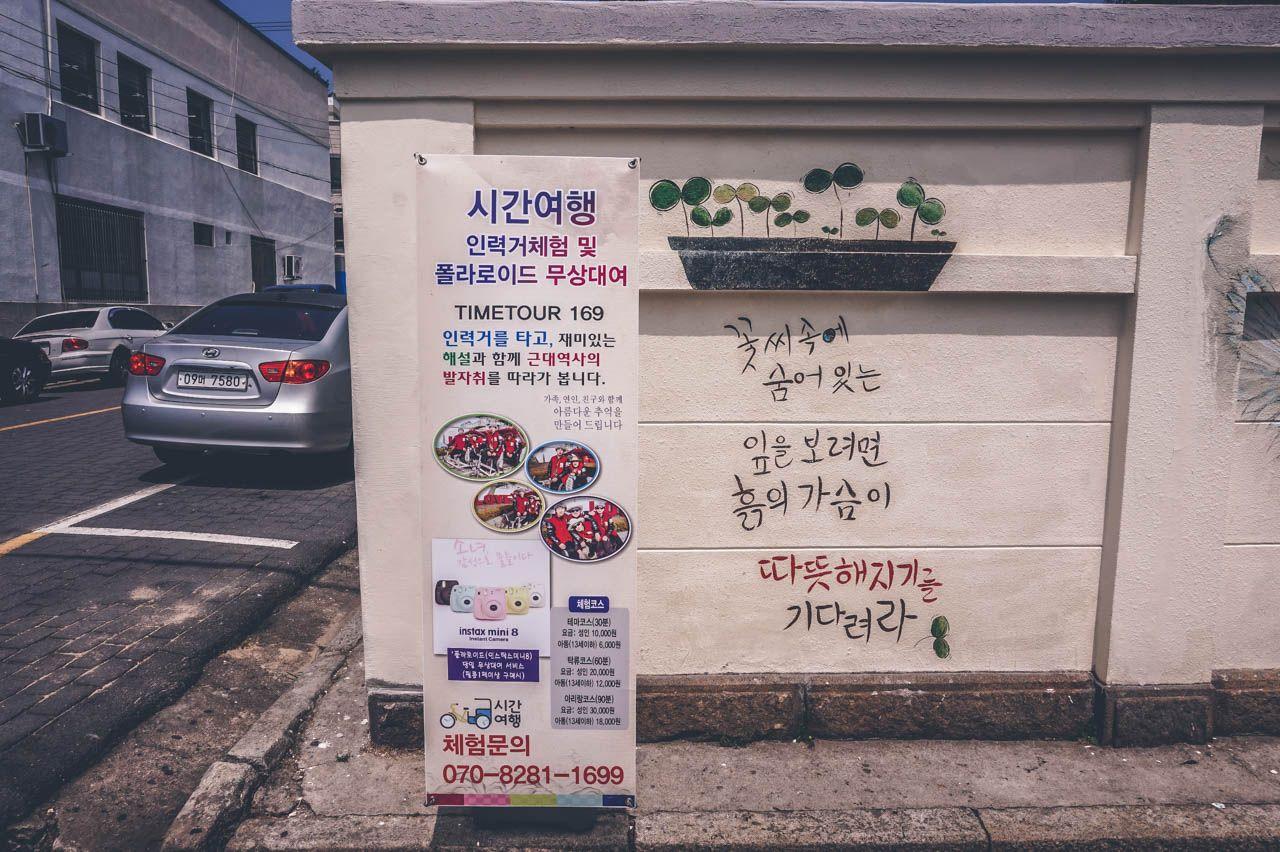 시간여행
인력거체험 및
폴라로이드 무상대여
TIMETOUR 169
인력거를 타고, 재미있는
해설과 함께 근대역사의
발자취를 따라가 봅니다.
가족, 연인, 친구와 함께
아름다운 추억을
만들어 드립니다
소녀
감성으로 물들이다
instax mini 8
Instant Camera
*폴라로이드(인스탁스미니8)
당일 무상대여 서비스
(필름1팩이상 구매시)
체험코스
테마코스(30분)
요금: 성인 10,000원
아동(13세이하) 6,000원
탁류코스(60분)
요금: 성인 20,000원
아동(13세이하) 12,000원
아리랑코스(90분)
요금: 성인 30,000원
아동(13세이하) 18,000원
시간
여행
체험문의
070-8281-1699
꽃씨 속에
숨어 있는
잎을 보려면
흙의 가슴이
따뜻해지기를
기다려라
09머 7580